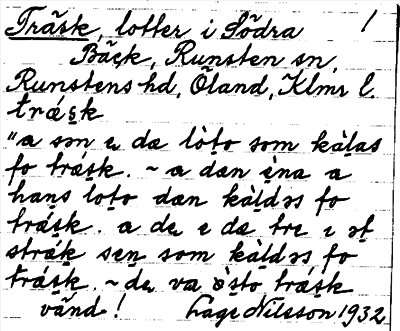 Träsk, lotter i Södra 1
Bäck, Runsten sn,
Runstens hd, Öland, Klmr l.
trásk
"a sən e dæ lòto som kàlas
fo trásk. ~ a dæn èna a
hans loto dæn kàldəs fo
trásk. a de e dæ tre i ət
stråk sen som kàldəs fo
trásk. ~ de va òsto trásk
vänd! Lage Nilsson 1932